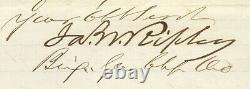 Your Obt Servt
Jas. W. Ripley
Brig. Gen.